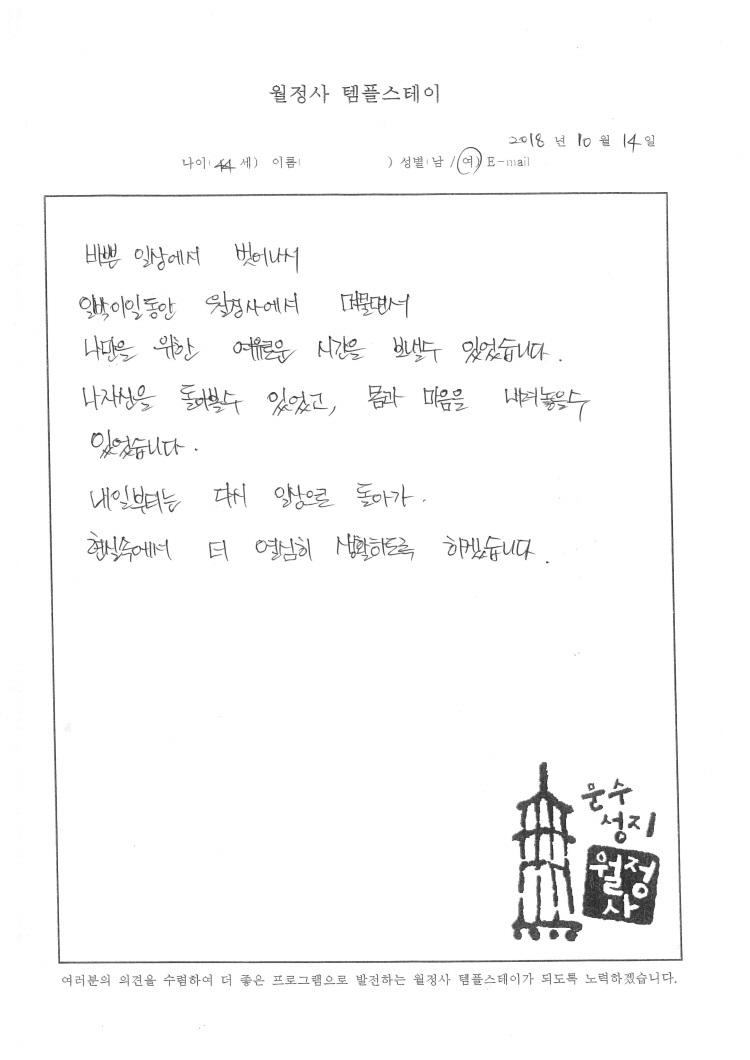 월정사 템플스테이
2018 년 10 월 14 일
나이( 44 세) 이름( ) 성별(남 / 여) E-mail
바쁜 일상에서 벗어나서
일박이일동안 월정사에서 머물면서
나만을 위한 여유로운 시간을 보낼수 있었습니다.
나자신을 돌아볼수 있었고, 몸과 마음을 내려놓을수
있었습니다.
내일부터는 다시 일상으로 돌아가.
현실속에서 더 열심히 생활하도록 하겠습니다.
문수
성지
월정
사
여러분의 의견을 수렴하여 더 좋은 프로그램으로 발전하는 월정사 템플스테이가 되도록 노력하겠습니다.